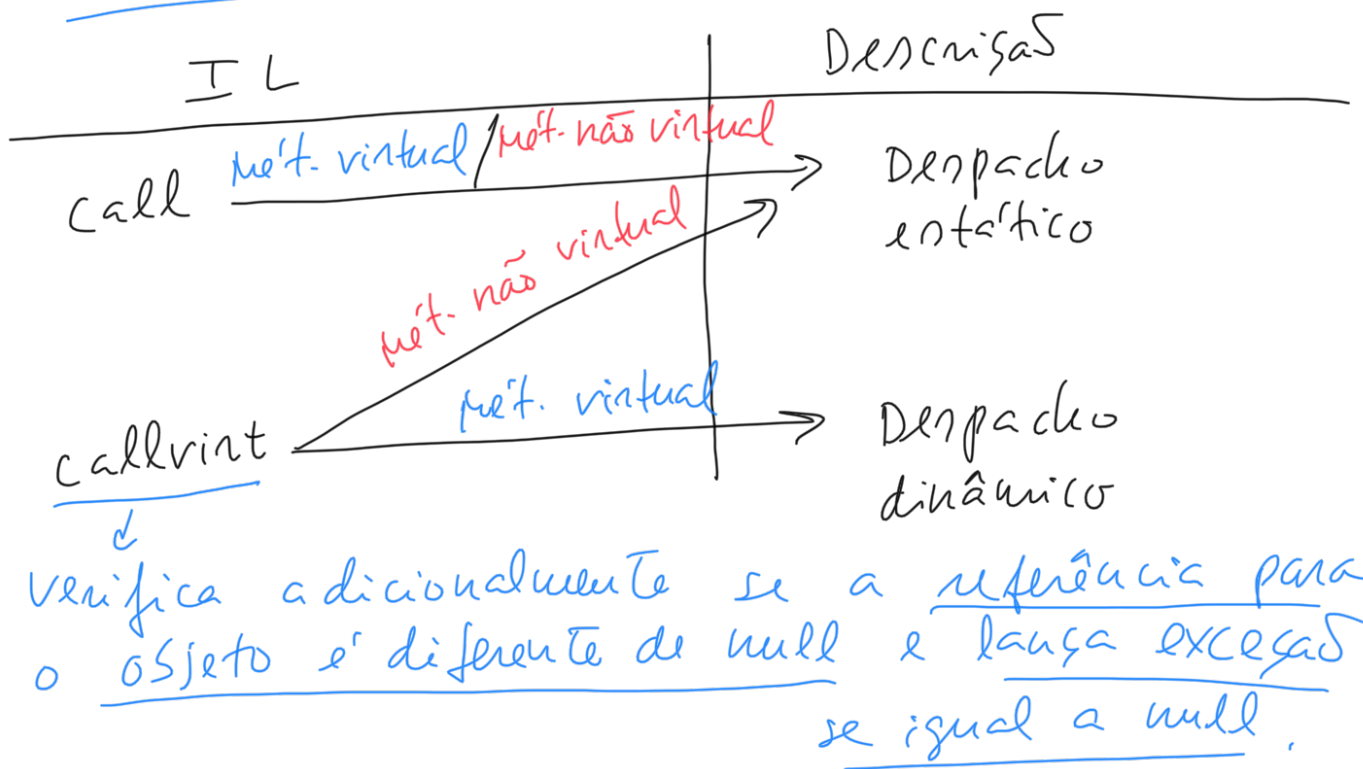 IL
Descrição
call
mét. virtual / mét. não virtual
Despacho
estático
mét. não virtual
mét. virtual
callvirt
Despacho
dinâmico
verifica adicionalmente se a referência para
o objeto é diferente de null e lança exceção
se igual a null.